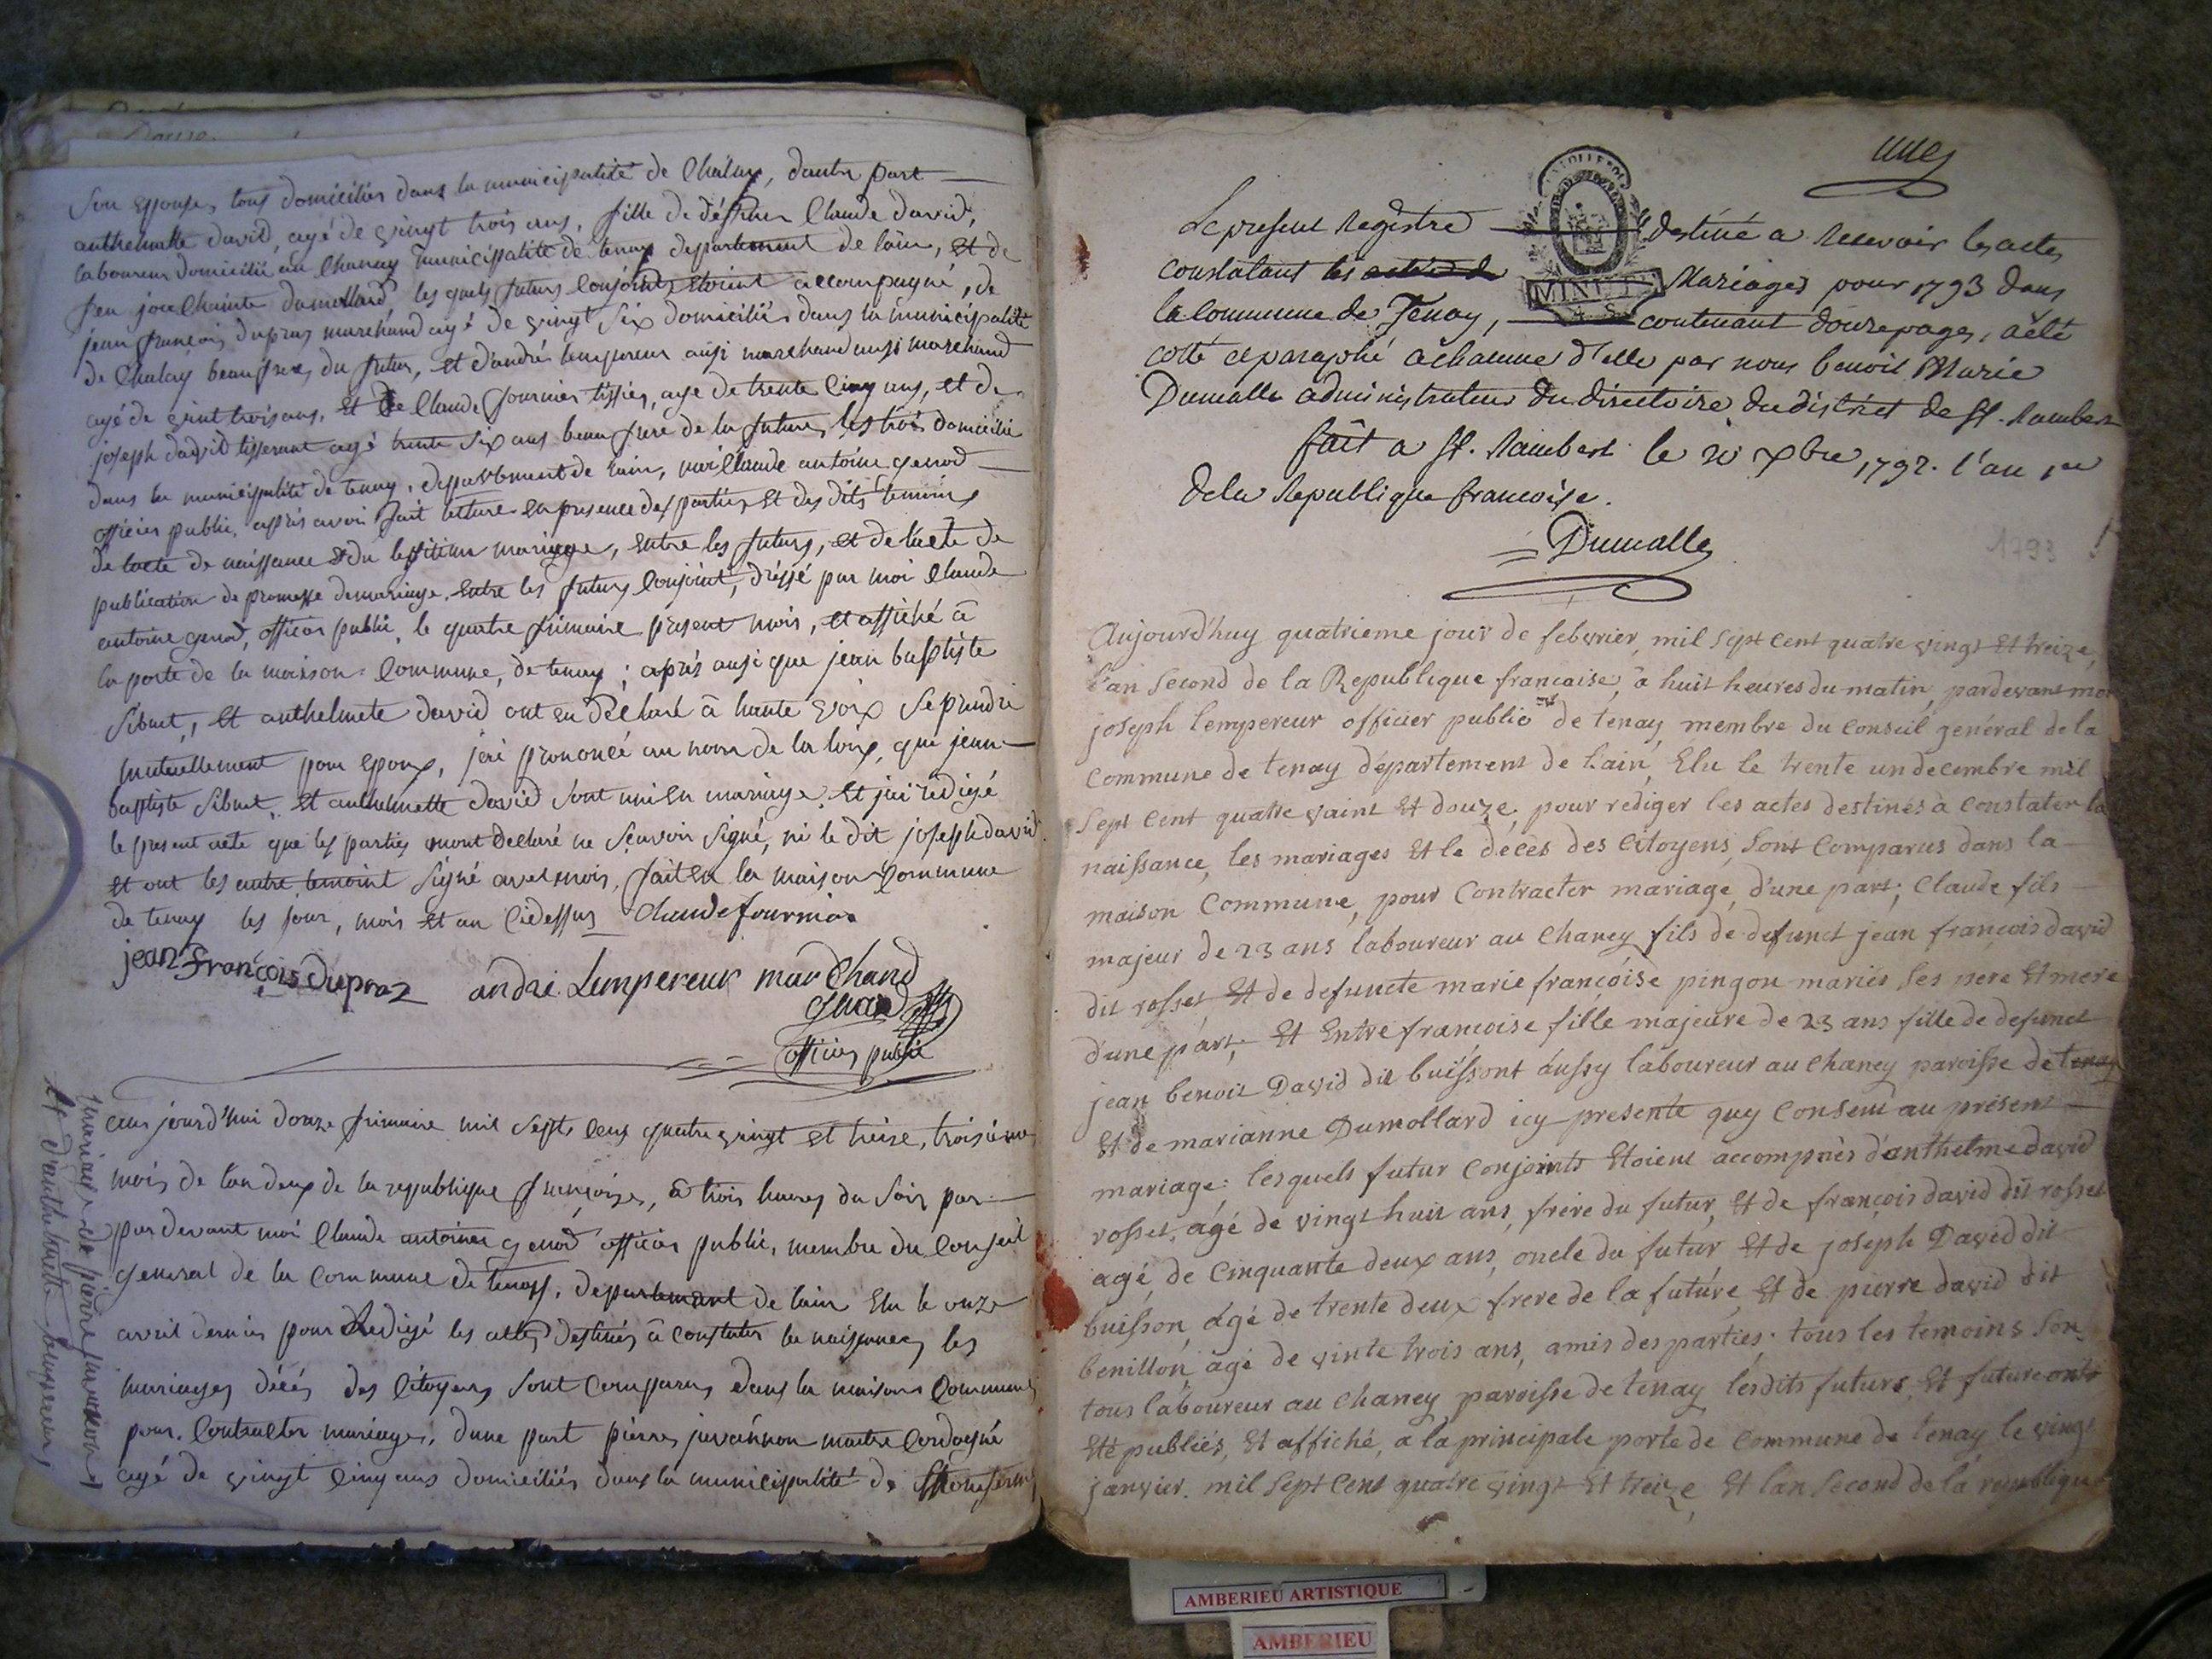 son epouse, tous domiciliés dans la municipalité de Chaley, dautre part
anthelmette david, agé de vingt trois ans, fille de défunt Claude david,
laboureur domicilié au Chanay municipalité de tenay departement de lain, et de
feu dumollard, les quels futurs conjoints etoint accompagné, de
jean francois dupras marchand agé de vingt six domiciliés dans la municipalité
de Chaley beaufrere du futur, et dandré lempereur ausi marchand ausi marchand
agé de vint trois ans, et de Claude fournier tissier, age de trente cinq ans, et de
joseph david tisserant agé trente six ans beau frere de la future, les trois domicilié
dans la municipalité de tenay, departement de lain, moi Claude antoine genod
officier public, après avoir fait lecture en presence des parties et des dits temoins
de lacte de naissance du legitime mariage, entre les futurs, et de lacte de
publication de promesse de mariage entre les futurs conjoint, dréssé par moi Claude
antoine genod, officier public, le quatre frimaire present mois, et affiché à
la porte de la maison commune, de tenay ; aprés ausi que jean baptiste
Sibuet, et anthelmete david ont eu déclaré à haute voix se prendre
mutuellement pour epoux, jai prononcé au nom de la loix, que jean
baptiste Sibuet, et anthelmette david sont unis en mariage, et jai rédigé
le present acte que les parties mont declaré ne scavoir signé, ni le dit joseph david
et ont les autre temoint signé avec mois, fait en la maison commune
de tenay les jour, mois et an cidessus Claude fournier
jean françois dupraz andré Lempereur marchand
genod
officier public
mariage de pierre juvannon
et d'anthelmette lempereur
aujourd'hui douze frimaire mil sept cens quatre vingt et treise, troisieme
mois de lan deux de la republique françoise, à trois heures du soir par
pardevant moi Claude antoine genod officier public, membre du Conseil
general de la commune de tenay, departemant de lain elu le onze
avril dernier pour Redigé les actes destinés à constater la naissance, les
mariages décés des Citoyens sont comparus dans la maison Commune
pour Contracter mariage, dune part pierre juvannon maitre Cordogné
agé de vingt cinq ans domiciliés dans la municipalité de
une
Le present Registre destiné a Recevoir les actes
constatant les Mariages pour 1793 dans
la Commune de Tenay, contenant douze pages, a été
cotté et paraphé a chacune d'elle par nous benoit Marie
Dumalle administrateur du directoire du district de St. Rambert
fait a St. Rambert le 20 xbre 1792. l'an 1er
de la Republique francoise.
Dumalle
1793
Aujourd'huy quatrieme jour de febvrier, mil sept cent quatre vingt et treize,
l'an second de la Republique francaise, à huit heures du matin, pardevant moi
joseph lempereur officier public de tenay, membre du conseil genéral de la
commune de tenay département de L'ain, Elu le trente un decembre mil
sept cent quatre vaint et douze, pour rediger les actes destinés à constater la
naissance, les mariages et le décès des Citoyens, sont comparus dans la
maison Commune, pour Contracter mariage, d'une part; Claude fils
majeur de 23 ans laboureur au Chaney fils de defunct jean françois david
dit rosset, et de defuncte marie françoise pingon mariés ses pere et mere
d'une part; Et Entre francoise fille majeure de 23 ans fille de defunct
jean benoit David dit buissont aussy laboureur au chaney paroisse de tenay
et de marianne Dumollard icy presente quy Consent au present
mariage: lesquels futur conjoints etoient accompnés d'anthelme david
rosset, agé de vingt huit ans, frère du futur, et de françois david dit rosset
agé, de cinquante deux ans, oncle du futur et de joseph David dit
buisson, agé de trente deux frere de la future, et de pierre david dit
benillon, agé de vinte trois ans, amis des parties; tous les temoins son
tous laboureur au chaney paroisse de tenay lesdits futurs et future onts
eté publiés, et affiché, a la principale porte de commune de tenay le vingt
janvier, mil sept cent quatre vingt et treize, et l'an second de la republique
AMBERIEU ARTISTIQUE
AMBERIEU